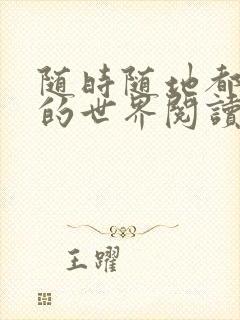 随時随地都
的世界閱讀
王躍